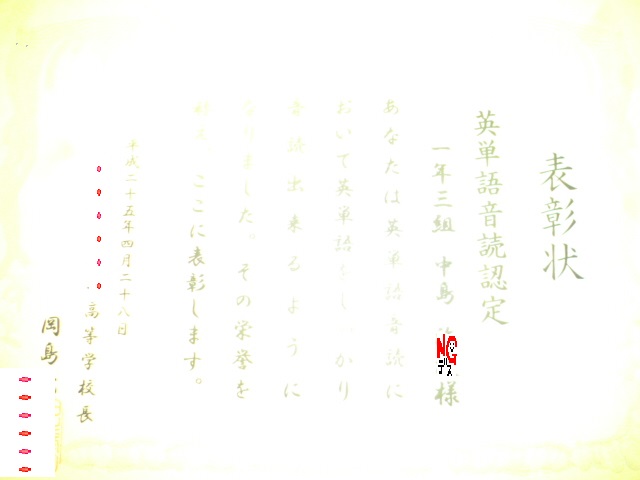 表彰状
英単語音読認定
一年三組 中島
NG
デス
様
あなたは英単語音読に
おいて英単語をしっかり
音読出来るように
なりました。その栄誉を
ここに表彰します。
平成二十五年四月二十八日
高等学校長
岡島